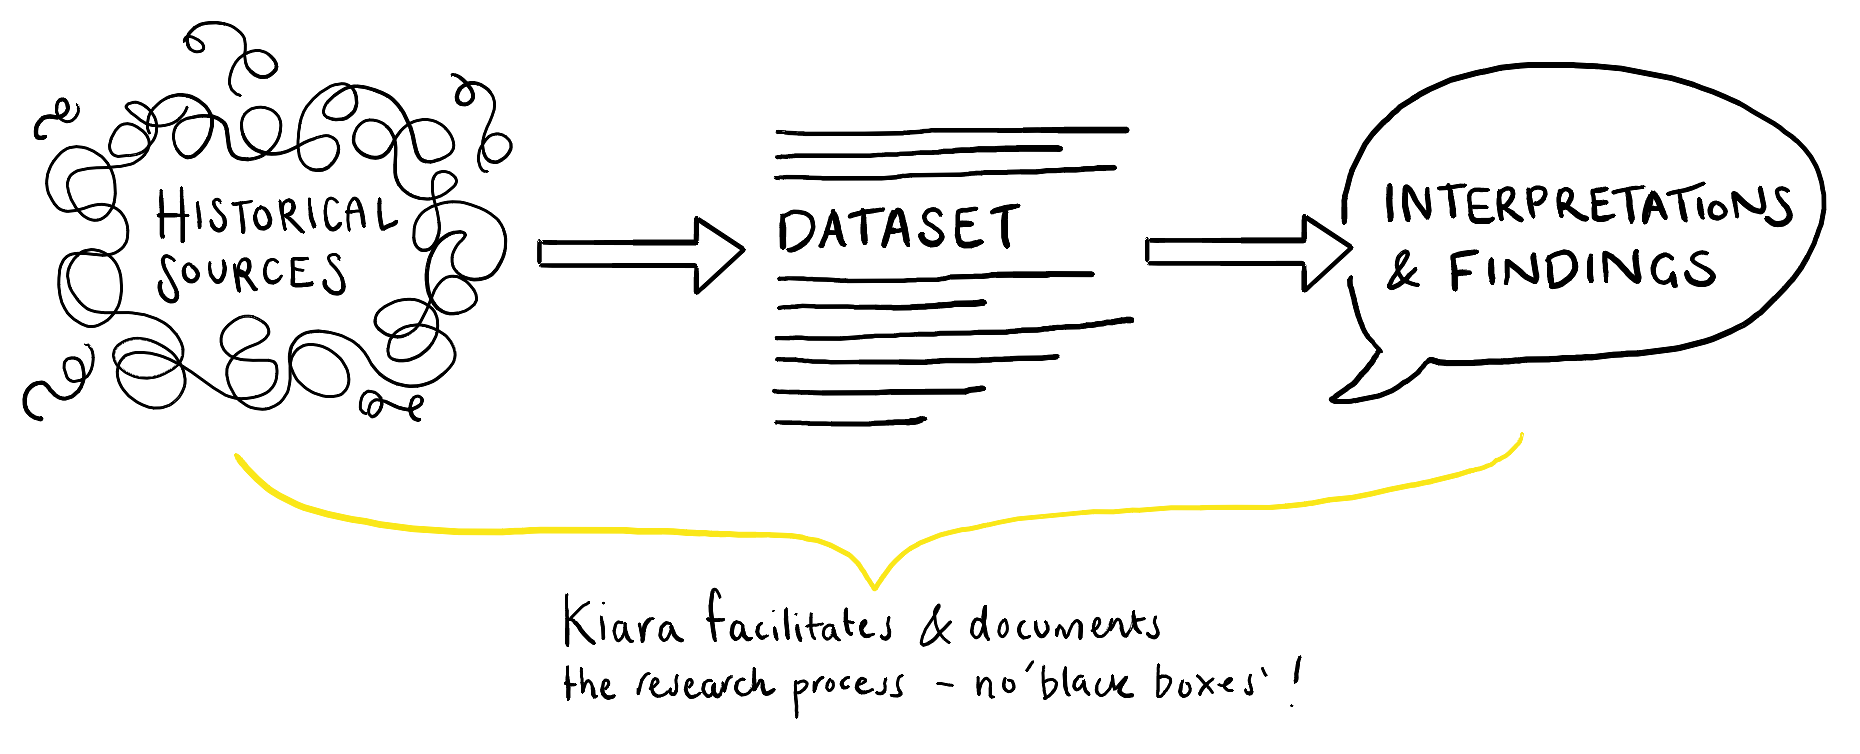 HISTORICAL
SOURCES
DATASET
INTERPRETATIONS
& FINDINGS
Kiara facilitates & documents
the research process - no 'black boxes' !